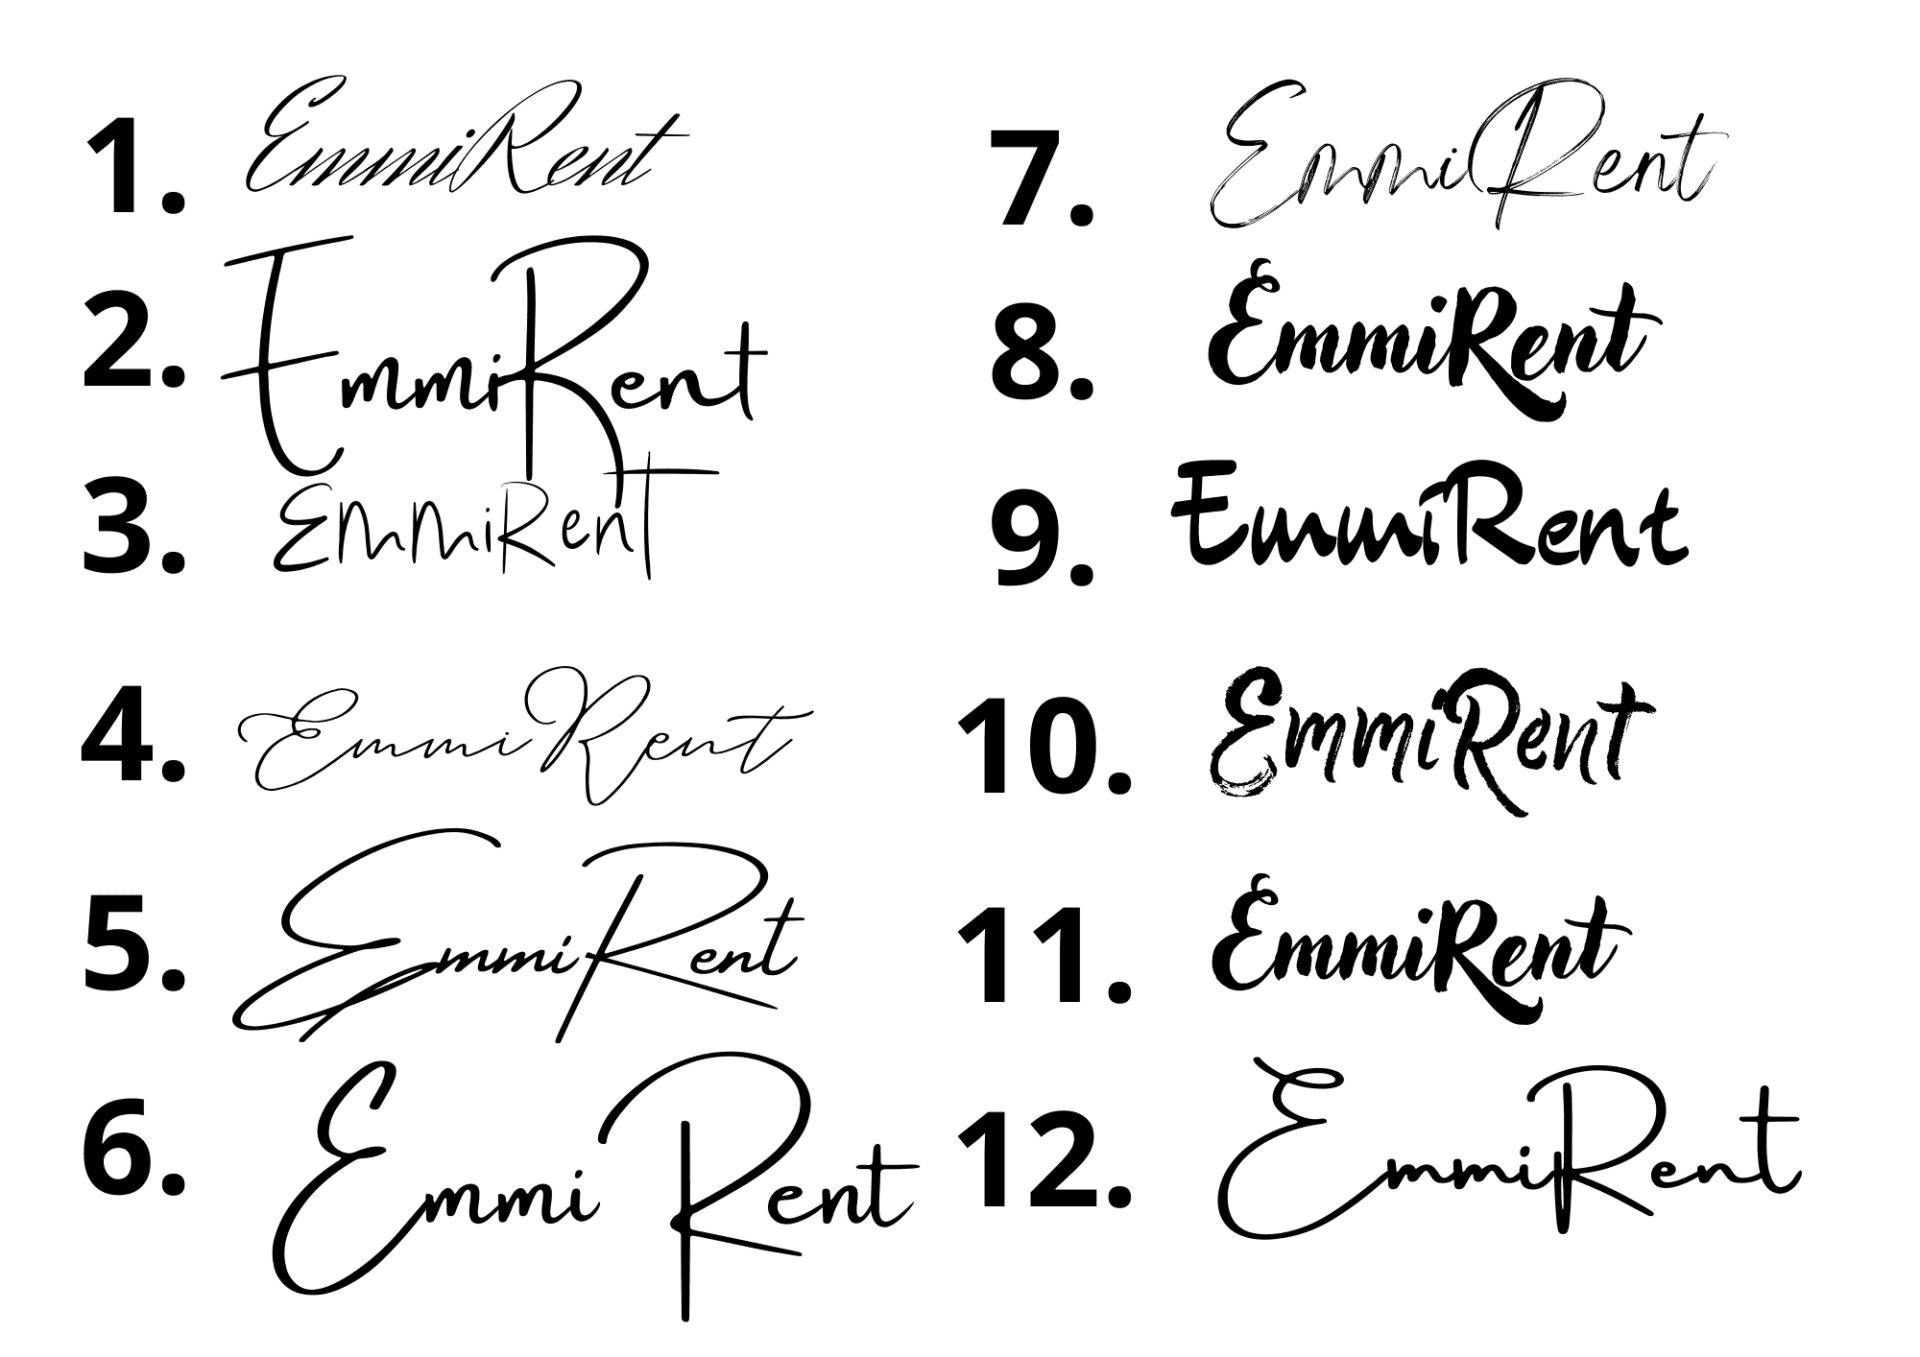 1. EmmiRent
2. EmmiRent
3. EmmiRent
4. EmmiRent
5. EmmiRent
6. Emmi Rent
7. EmmiRent
8. EmmiRent
9. EmmiRent
10. EmmiRent
11. EmmiRent
12. EmmiRent